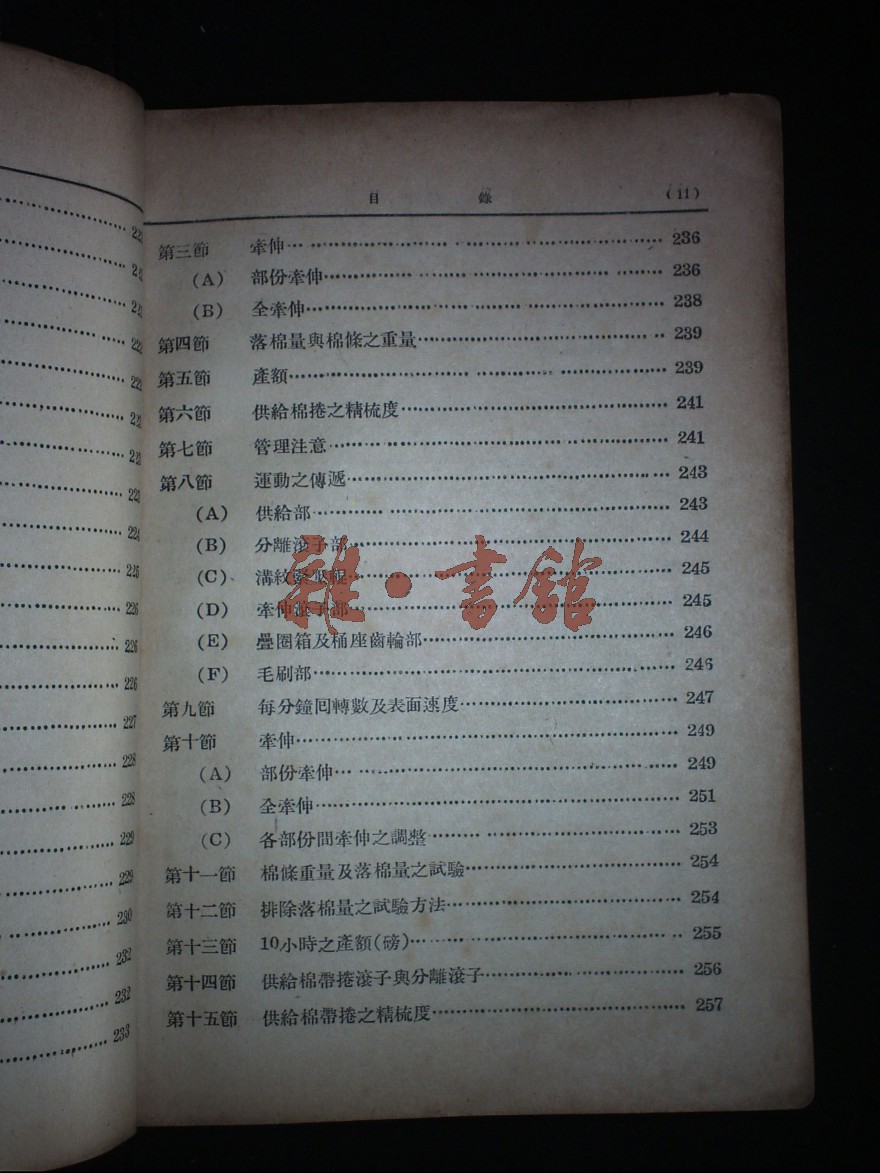 目 錄 (11)
第三節 牽伸 236
(A) 部份牽伸 236
(B) 全牽伸 238
第四節 落棉量與棉條之重量 239
第五節 產額 239
第六節 供給棉捲之精梳度 241
第七節 管理注意 241
第八節 運動之傳遞 243
(A) 供給部 243
(B) 分離滾子部 244
(C) 溝紋緊壓輥 245
(D) 牽伸滾子部 245
(E) 疊圈箱及桶座齒輪部 246
(F) 毛刷部 246
第九節 每分鐘回轉數及表面速度 247
第十節 牽伸 249
(A) 部份牽伸 249
(B) 全牽伸 251
(C) 各部份間牽伸之調整 253
第十一節 棉條重量及落棉量之試驗 254
第十二節 排除落棉量之試驗方法 254
第十三節 10小時之產額(磅) 255
第十四節 供給棉帶捲滾子與分離滾子 256
第十五節 供給棉帶捲之精梳度 257
雜·書館
223
224
226
226
226
227
228
228
229
229
230
232
232
233